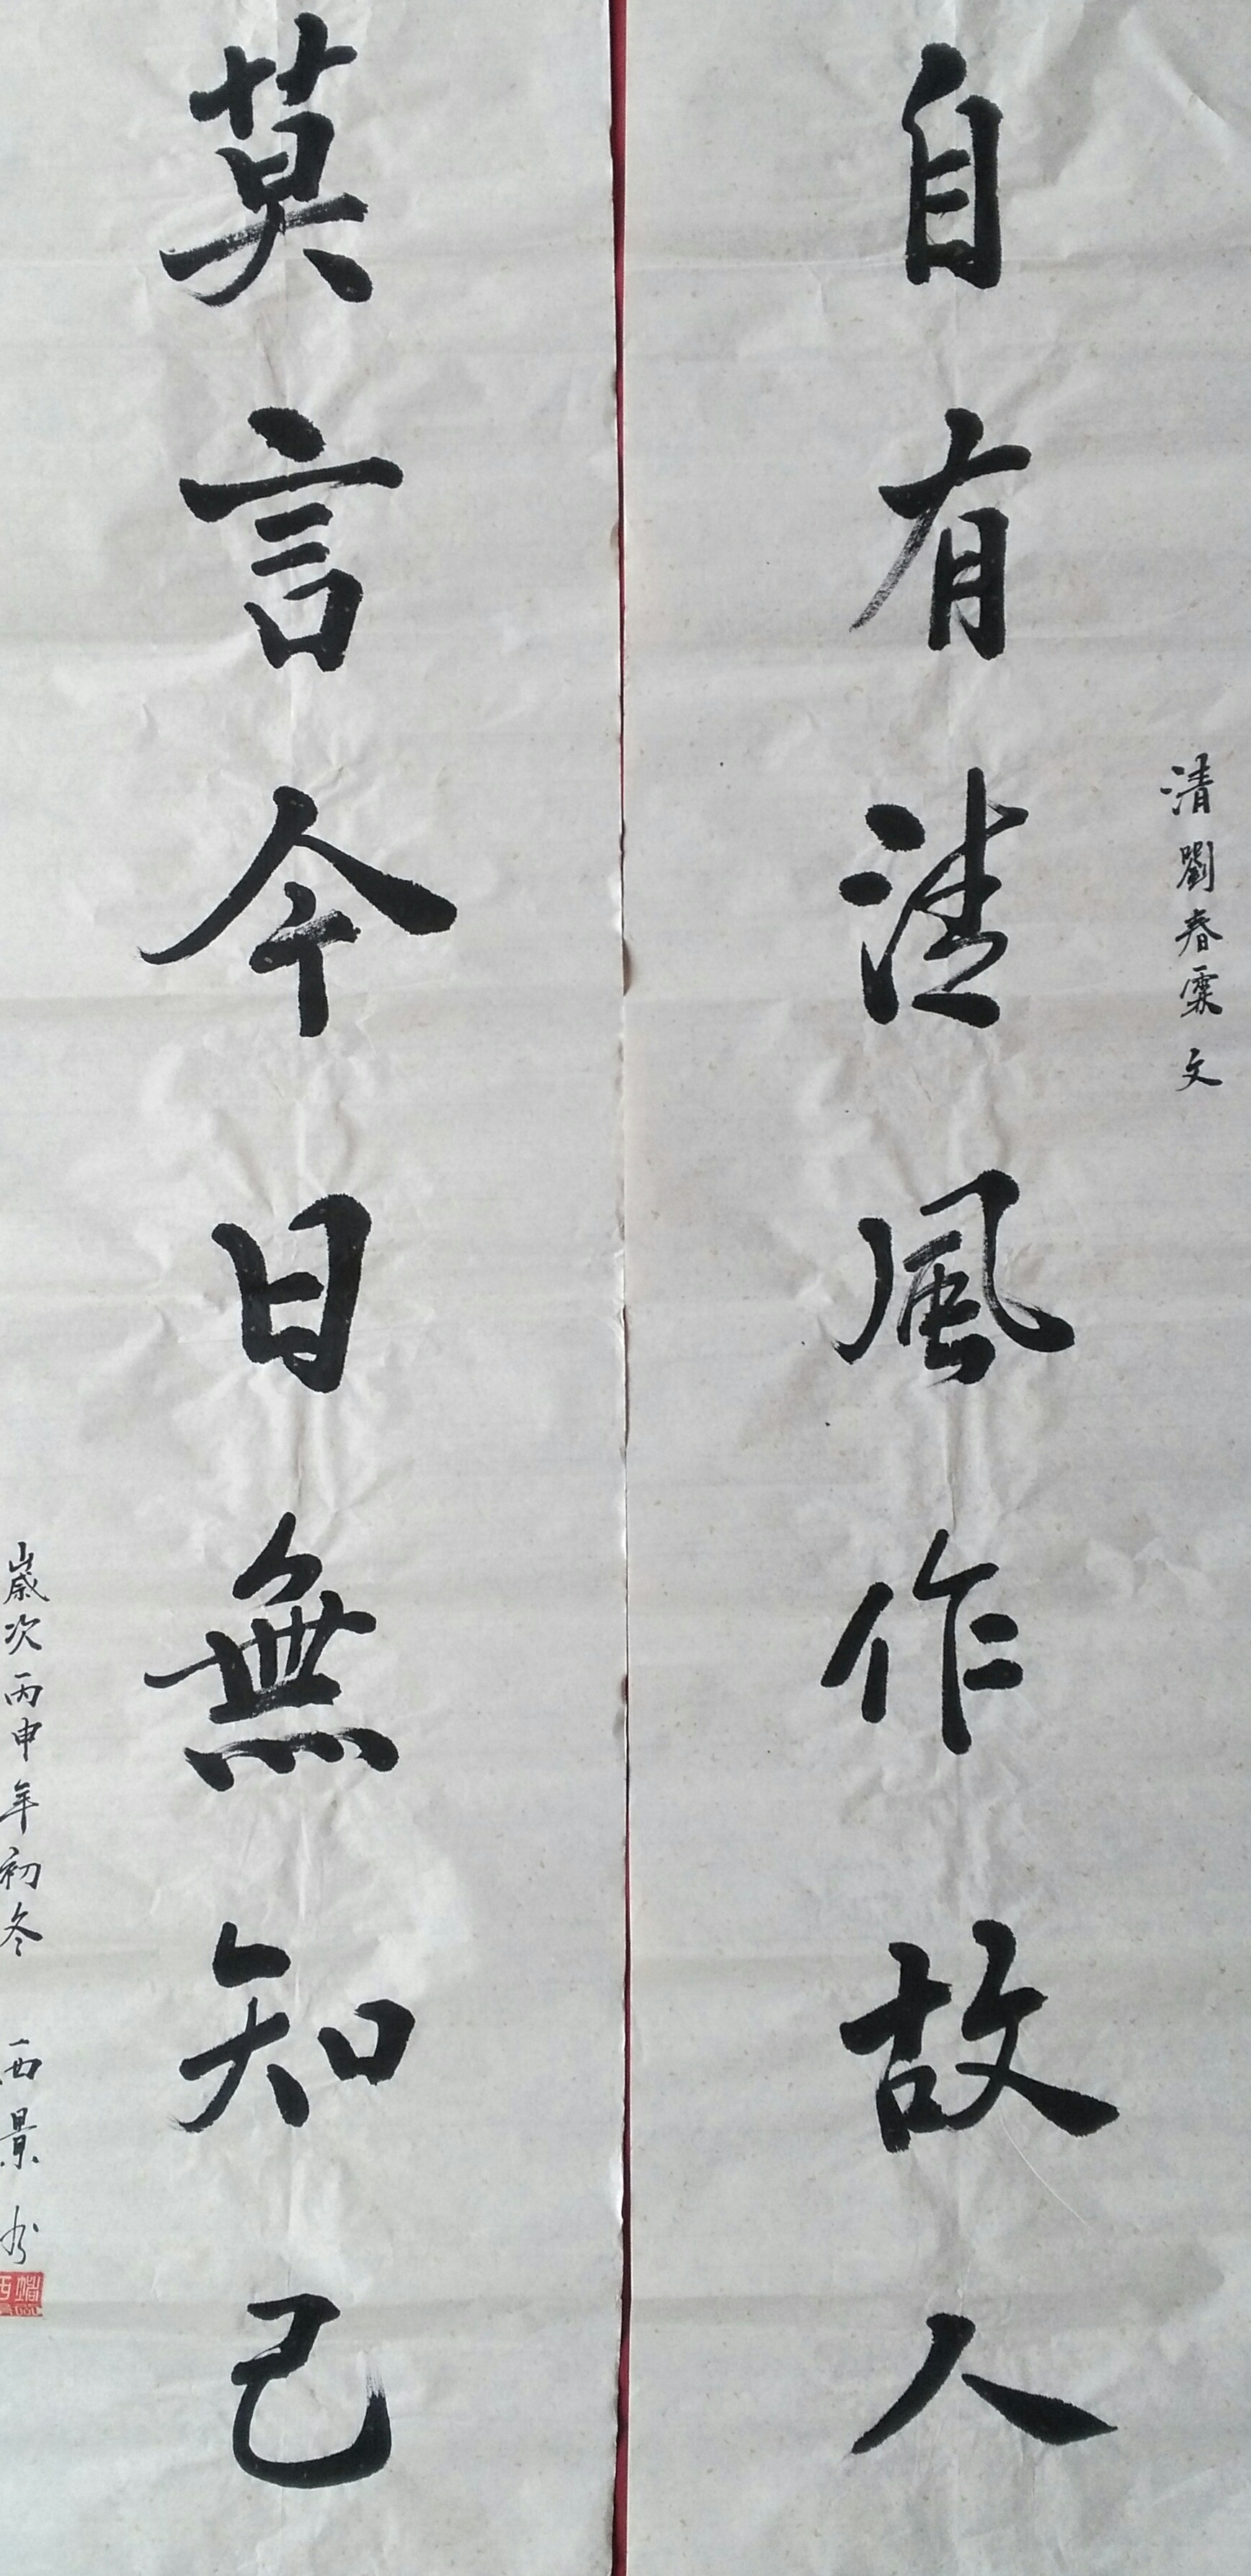 清劉春霖文
自有清風作故人
莫言今日無知己
歲次丙申年初冬 西景